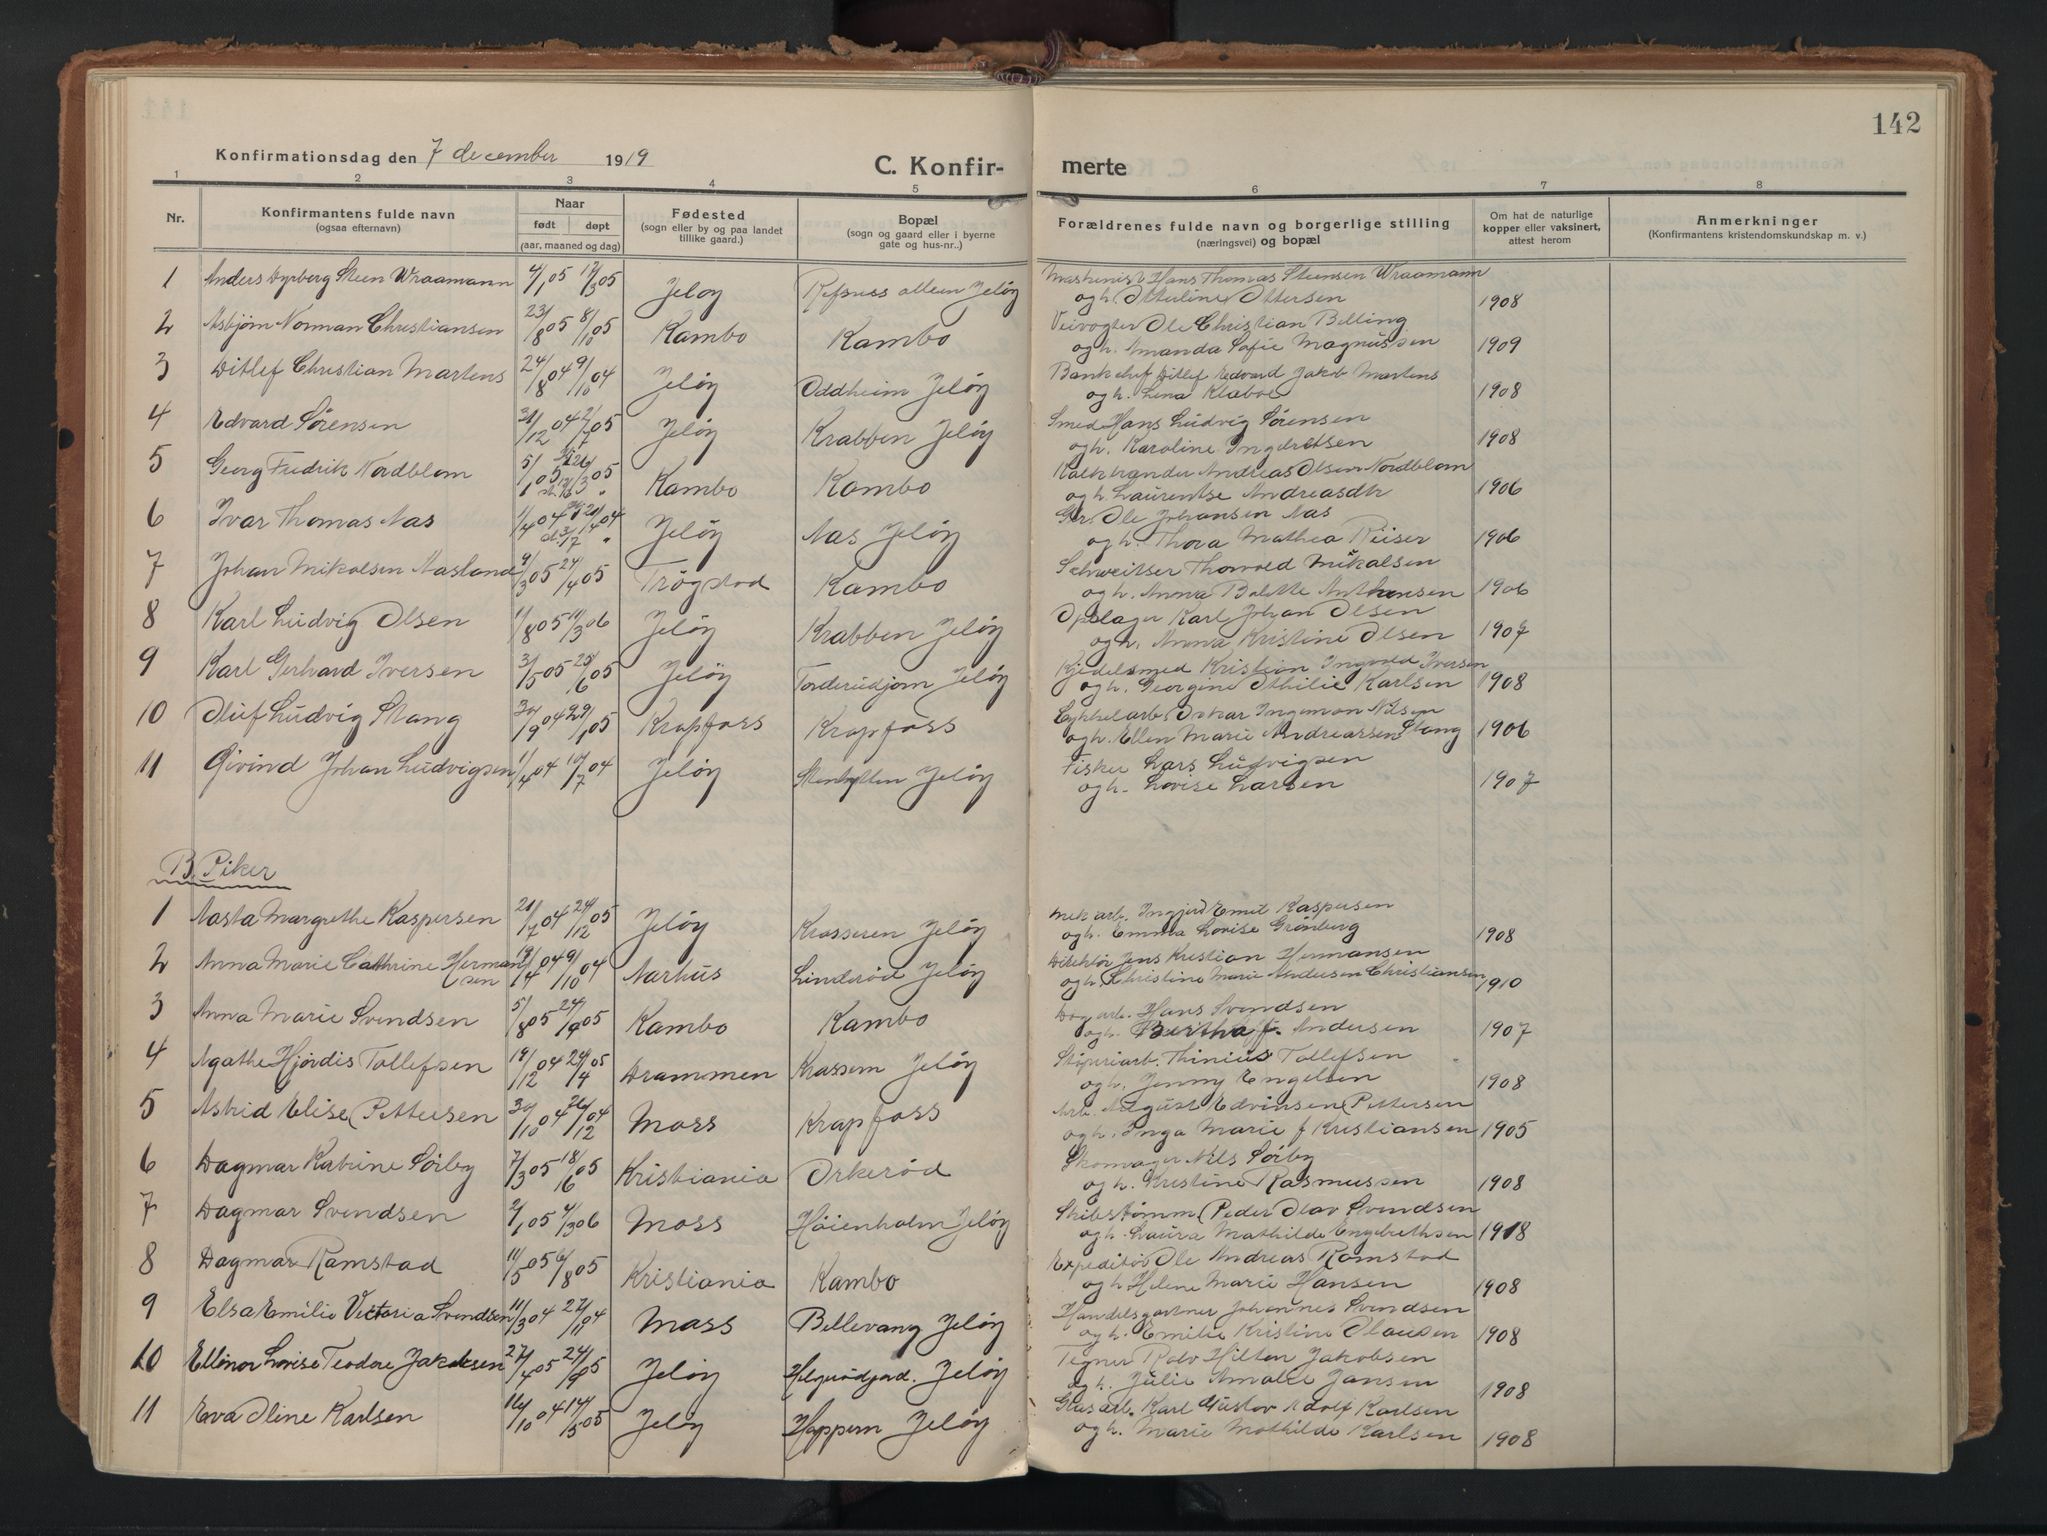 142
Konfirmationsdag den 7 december 1919
C. Konfir- merte
1 2 3 4 5 6 7 8
Nr. Konfirmantens fulde navn (ogsaa efternavn) Naar født døpt (aar, maaned og dag) Fødested (sogn eller by og paa landet tillike gaard.) Bopæl (sogn og gaard eller i byerne gate og hus-nr..) Forældrenes fulde navn og borgerlige stilling (næringsvei) og bopæl Om hat de naturlige kopper eller vaksinert, attest herom Anmerkninger (Konfirmantens kristendomskundskap m. v.)
1 Anders Dyrberg Steen Wraamann 4/1 05 17/3 05 Jeløy Refsnes alleen Jeløy Maskinist Hans Thomas Steensen Wraamann
og h. Otterline Ottersen 1908
2 Asbjørn Norman Christiansen 23/8 05 8/10 05 Kambo Kambo Veivogter Ole Christian Billing
og h. Amanda Sofie Magnussen 1909
3 Ditlef Christian Martens 24/8 04 9/10 04 Jeløy Oddheim Jeløy Bankchef Ditlef Edvard Jakob Martens
og h. Lena Klæboe 1908
4 Edvard Sørensen 31/12 04 2/7 05 Jeløy Krabben Jeløy Smed Hans Ludvig Sørensen
og h. Karoline Ingeretsen 1908
5 Georg Fredrik Nordblom 5/1 05 26/3 05 Kambo Kambo Kalkbrænder Andreas Olsen Nordblom
og h. Laurentse Andreasdtr 1906
6 Ivar Thomas Aas 1/4 04 Jeløy Aas Jeløy Gbr. Ole Johansen Aas
og h. Thora Mathea Reiser 1906
7 Johan Mikalsen Aasland 9/3 05 24/4 05 Trøgstad Kambo Schweitser Thorvald Mikalsen
og h. Anna Bolette Anthensen 1906
8 Karl Ludvig Olsen 11/8 05 11/3 06 Jeløy Krabben Jeløy Oplager Karl Johan Olsen
og h. Anna Kristine Olsen 1907
9 Karl Gerhard Iversen 3/5 05 25/6 05 Jeløy Torderudjorn Jeløy Kjedelsmed Kristian Ingvald Iversen
og h. Georgine Othilie Karlsen 1908
10 Oluf Ludvig Stang 30/9 04 29/1 05 Krapfoss Krapfoss Cykkelarb. Oskar Ingeman Nilsen
og h. Ellen Marie Andreassen Stang 1906
11 Øivind Johan Ludvigsen 1/4 04 10/7 04 Jeløy Stenhytten Jeløy Fisker Lars Ludvigsen
og h. Lovise Larsen 1907
B. Piker
1 Aasta Margrethe Kaspersen 21/7 04 24/12 05 Jeløy Krasseren Jeløy Mek arb. Ingjerd Emil Kaspersen
og h. Emma Lovise Grønberg 1908
2 Anna Marie Cathrine Herman 19/4 04 9/10 04 Aarhus Linderød Jeløy Direktør Jens Kristian Hermansen
sen og h. Christine Marie Andersen Christiansen 1910
3 Anna Marie Svendsen 5/8 05 24/9 05 Kambo Kambo Dagarb. Hans Svendsen
og h. Bertha f. Andersen 1907
4 Agathe Hjørdis Tollefsen 19/12 04 24/4 05 Drammen Krassern Jeløy Støperiarb. Thinius Tollefsen
og h. Jenny Engelsen 1908
5 Astrid Elise Pettersen 30/10 04 26/12 04 Moss Krapfoss Arb. August Edvinsen Pettersen
og h. Inga Marie f Kristiansen 1905
6 Dagmar Katrine Sørby 7/3 05 18/6 05 Kristiania Orkerød Skomager Nils Sørby
og h. Kristine Rasmussen 1908
7 Dagmar Svendsen 2/1 05 4/3 06 Moss Høienholm Jeløy Skibstømm. Peder Olav Svendsen
og h. Laura Mathilde Engebrethsen 1918
8 Dagmar Ramstad 11/5 05 6/8 05 Kristiania Kambo Expeditør Ole Andreas Ramstad
og h Helene Marie Hansen 1908
9 Elsa Emilie Victoria Svendsen 11/3 04 27/11 04 Moss Bellevang Jeløy Handelsgartner Johannes Svendsen
og h. Emilie Kristine Olausen 1908
10 Ellinor Lovise Teodore Jakobsen 27/4 05 24/9 05 Jeløy Helgerødgard. Jeløy Tegner Rolv Hilten Jakobsen
og h. Julie Amalie Jansen 1908
11 Eva Oline Karlsen 16/10 04 14/5 05 Jeløy Hoppern Jeløy Glasarb. Karl Gustav Adolf Karlsen
og h. Marie Mathilde Karlsen 1908